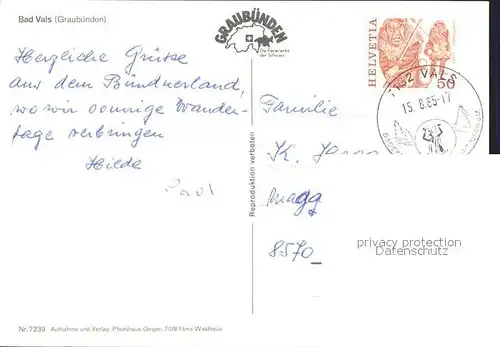 Bad Vals (Graubünden)
GRAUBÜNDEN
Die Ferienecke
der Schweiz
HELVETIA
50
7132 VALS
15.8.85-17
Herzliche Grüsse
aus dem Bündnerland,
wo wir sonnige Wander-
tage verbringen
Hilde
Paul
Reproduktion verboten
Familie
K.
8570
privacy protection
Datenschutz
Nr. 7239 Aufnahme und Verlag: Photohaus Geiger, 7018 Flims-Waldhaus